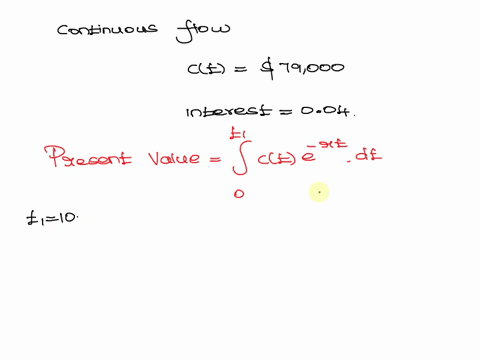 Continuous flow
c(t) = $79,000
interest = 0.04.
Present Value = ∫₀^t1 c(t) e^-rt . dt
t₁=10.